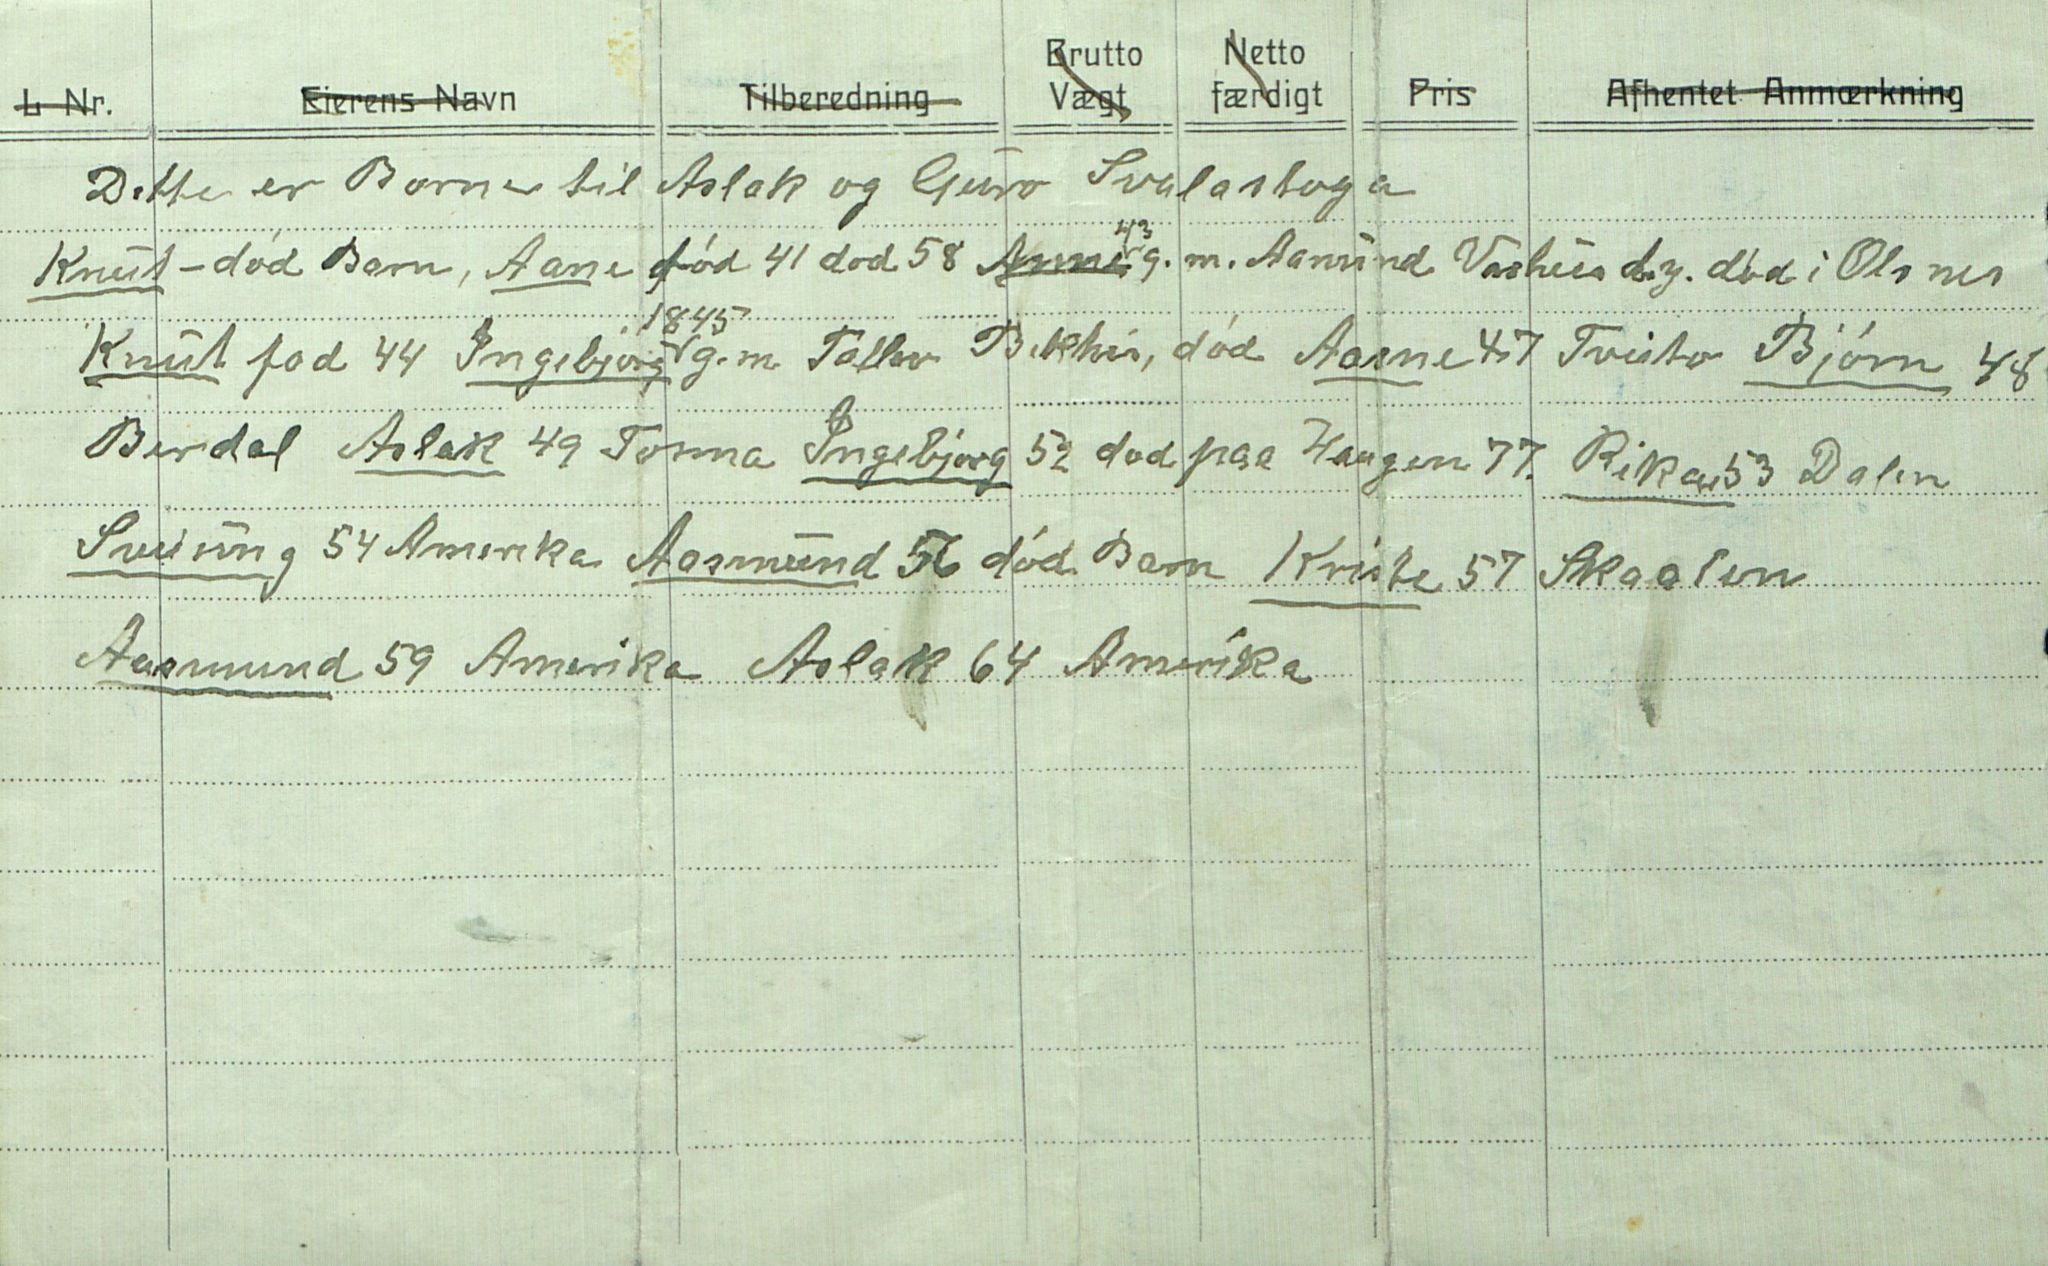 L Nr. Eierens Navn Tilberedning Brutto Vægt Netto færdigt Pris Afhentet Anmærkning
Dette er Borne til Aslak og Guro Svalastoga
Knut - död Barn, Aane föd 41 dod 58 Anne 43 g. m. Aamund Vashus död i Olsnes
Knut fod 44 Ingebjorg 1845 g. m. Tallev Bekhus, död Aasne 47 Tveito Björn 48
Berdal Aslak 49 Tonna Ingebjorg 52 dod paa Haugen 77. Rikar 53 Dalen
Sveinung 54 Amerika Aasmund 56 död Barn Kriste 57 Skaalen
Aasmund 59 Amerika Aslak 64 Amerika